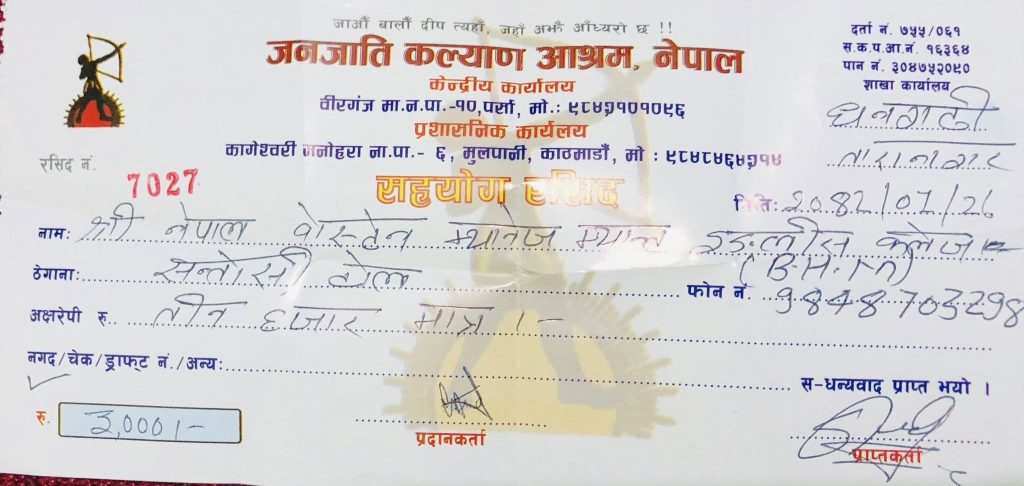 जाऔँ बालौँ दीप त्यहाँ, जहाँ अझै आँध्यरो छ !!
जनजाति कल्याण आश्रम, नेपाल
केन्द्रीय कार्यालय
वीरगंज मा.न.पा.-१०,पर्सा, मो.: ९८४५१०१०९६
प्रशासनिक कार्यलय
कागेश्वरी मनोहरा ना.पा.- ६, मुलपानी, काठमाडौं, मो : ९८४८४६४५१४
दर्ता नं. ७५५/०६१
स.क.प.आ.नं. १६३६४
पान नं. ३०४७५२०९०
शाखा कार्यालय
धनगढी
तारानगर
रसिद नं. 7027
सहयोग रसिद
मिति: 2082/01/26
नामः श्री नेपाल इङ्लीस कलेज
(B.H.M)
ठेगानाः सन्तोसी टोल
फोन नं. 9848703298
अक्षरेपी रु.. तीन हजार मात्र ।-
नगद/चेक/ड्राफ्ट नं./अन्यः
स-धन्यवाद प्राप्त भयो ।
रु. 3,000।-
प्रदानकर्ता
प्राप्तकर्ता